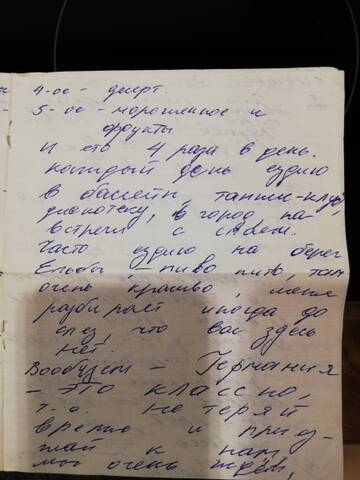 4-ое - десерт.
5-ое - мороженное и
фрукты
И это 4 раза в день.
каждый день ездию
в бассейн, таник-клуб,
дискотеку, в город, на
встречи с
Часто ездию на берег
Эльбы - пиво пить, там
очень красиво, меня
разбирает иногда до
слез, что вас здесь
нет.
Вообщем - Германия
- это классно,
т.о. не теряй
время и приез-
жай к нам,
мы очень ждём,